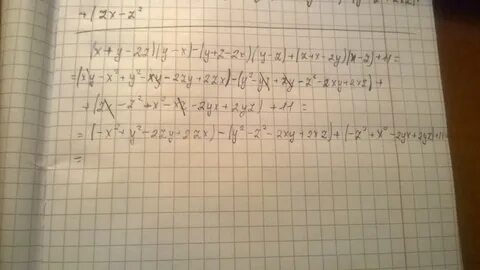 +(2x-z²
(x+y-2z)(y-x)-(y+z-2x)(y-z)+(z+x-2y)(x-z)+11=
=(xy-x²+y²-xy-2zy+2zx)-(y²-yz+zy-z²-2xy+2xz)+
+(zx-z²+x²-xz-2yx+2yz)+11=
=(-x²+y²-2zy+2zx)-(y²-z²-2xy+2xz)+(-z²+x²-2yx+2yz)+11=
=